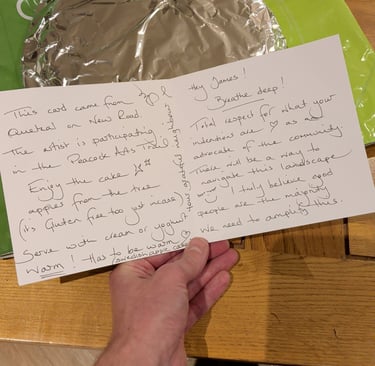 This card came from
Quetzal on New Road.
The artist is participating
in the Peacock Arts Trail
Enjoy the cake
apples from the tree
(its Gluten free too just incase)
Serve with cream or yoghurt
Warm! Has to be warm
(swedish apple cake)
Your grateful neighbour
Hey James!
Breathe deep!
Total respect for what your
intentions are as
advocate of the community
There will be a way to
navigate this landscape
I truly believe good
people are the majority
We need to amplify this.